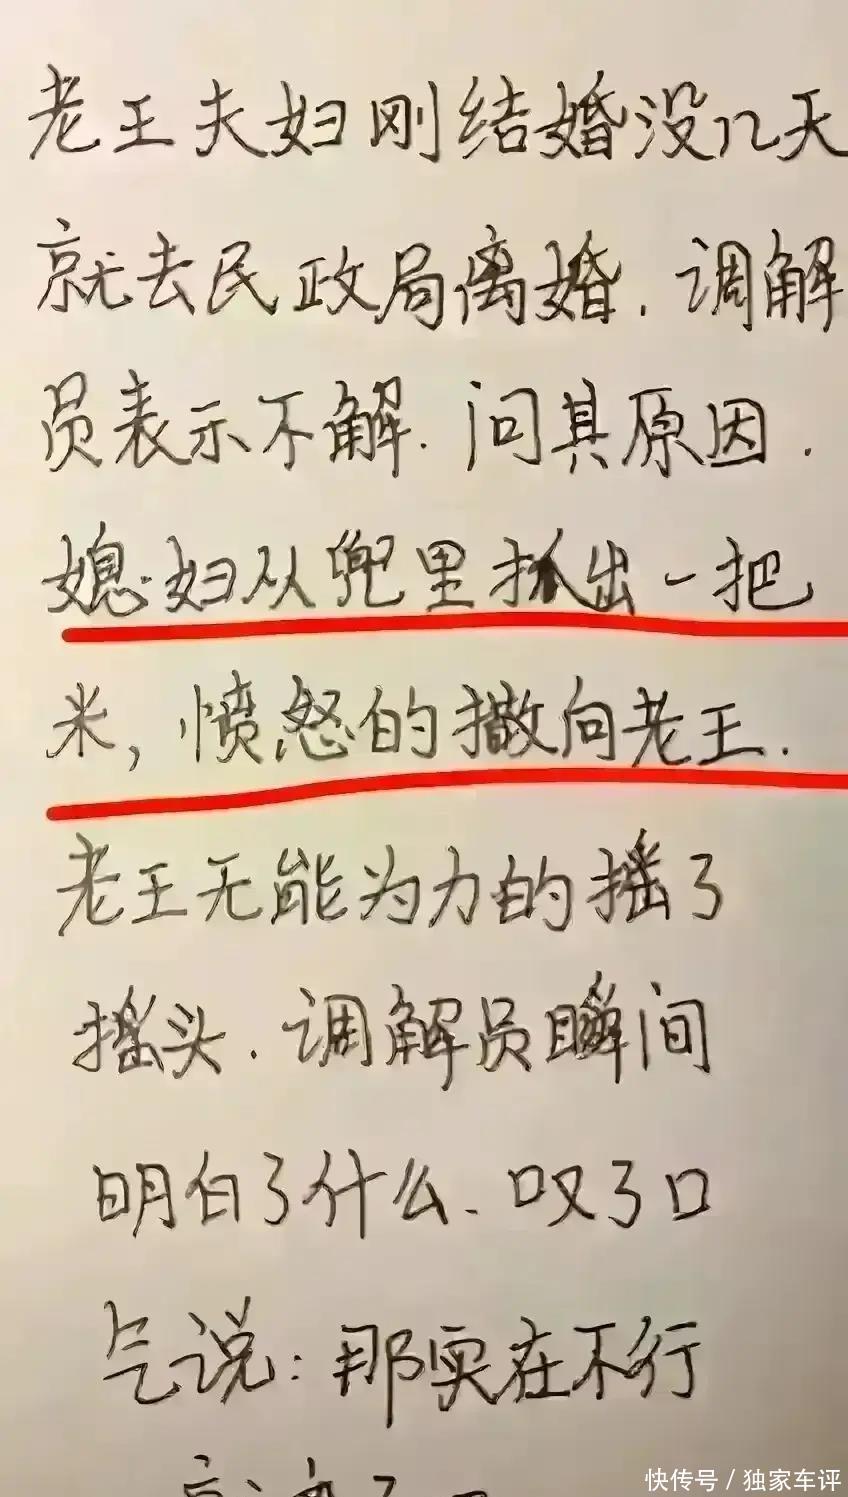 老王夫妇刚结婚没几天
就去民政局离婚.调解
员表示不解.问其原因.
媳妇从兜里抓出一把
米,愤怒的撒向老王.
老王无能为力的摇了
摇头.调解员瞬间
明白了什么、叹了口
气说:那实在不行
快传号/独家车评